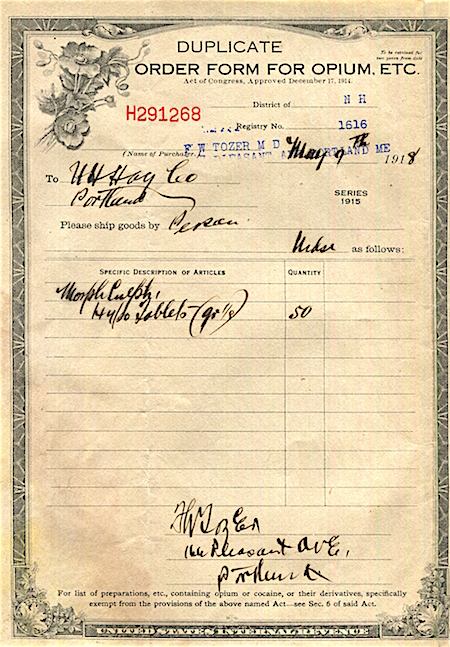 DUPLICATE
To be retained for
two years from date
ORDER FORM FOR OPIUM, ETC.
Act of Congress, Approved December 17, 1914.
H291268
District of N H
Registry No. 1616
F W TOZER M D
PLEASANT PORTLAND ME
(Name of Purchaser) May 9th 1918
To H H Hay Co
Portland
SERIES
1915
Please ship goods by Person
as follows:
SPECIFIC DESCRIPTION OF ARTICLES QUANTITY
Morph Sulph,
Hypo Tablets (gr 1/8) 50
FW Tozer
Pleasant Ave,
Portland
For list of preparations, etc., containing opium or cocaine, or their derivatives, specifically
exempt from the provisions of the above named Act—see Sec. 6 of said Act.
UNITED STATES INTERNAL REVENUE